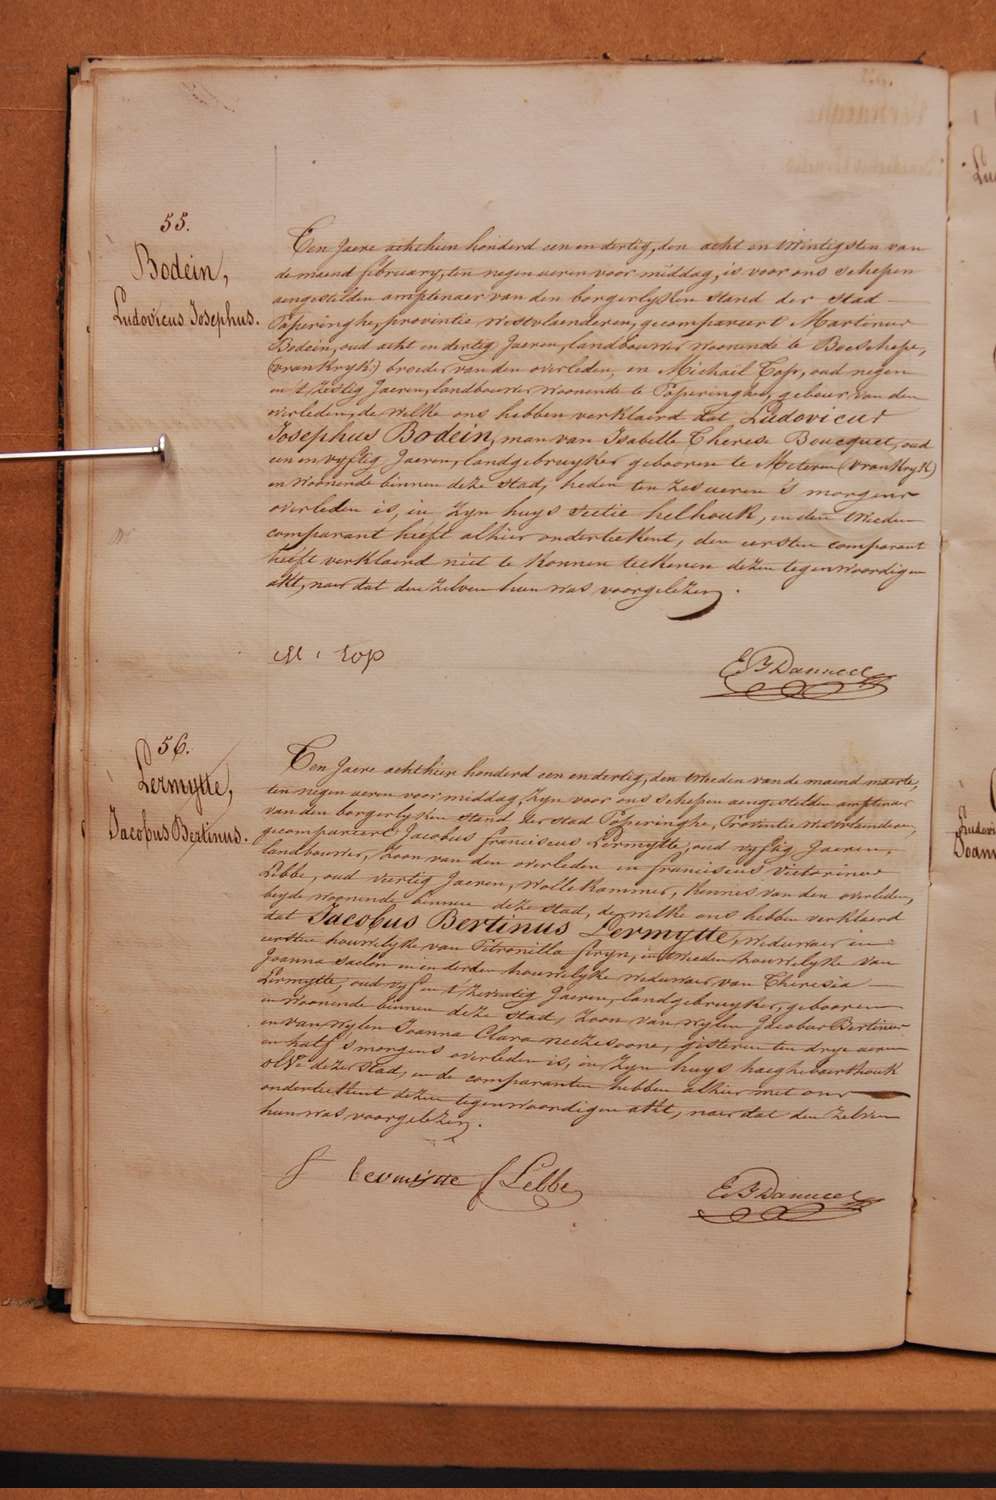 55.
Bodein,
Ludovicus Josephus.
Ten Jaere achthien honderd een en dertig, den acht en twintigsten van
de maend february, ten negen ueren voor middag, is voor ons schepen
aengestelden amptenaer van den borgerlyken stand der stad
Poperinghe, provintie westvlaenderen, gecompareert Martinus
Bodein, oud acht en dertig Jaeren, landbouwer woonende te Boeschepe,
(vrankryk) broeder van den overleden, en Michaël Top, oud negen
en t'zestig Jaeren, landbouwer woonende te Poperinghe, gebuer van den
overleden, de welke ons hebben verklaerd dat Ludovicus
Josephus Bodein, man van Isabelle Therese Boucquet, oud
een en vyftig Jaeren, landgebruyker gebooren te Meteren (vrankryk)
en woonende binnen deze stad, heden ten zes ueren 's morgens
overleden is, in zyn huys sectie helhouk, en den tweeden
comparant heeft alhier onderteekent, den eersten comparant
heeft verklaerd niet te konnen teekenen dezen tegenwoordigen
akt, naer dat den zelven hun was voorgelezen.
M: Top
E B Dannecel
56.
Lermytte,
Jacobus Bertinus.
Ten Jaere achthien honderd een en dertig, den tweeden van de maend maerte,
ten negen ueren voor middag, zyn voor ons schepen aengestelden amptenaer
van den borgerlyken stand der stad Poperinghe, Provintie westvlaenderen,
gecompareert Jacobus franciscus Lermytte, oud vyftig Jaeren,
landbouwer, zoon van den overleden en franciscus victorinus
Lebbe, oud viertig Jaeren, wollekammer, kennis van den overleden,
beyde woonende binnen deze stad, de welke ons hebben verklaerd
dat Jacobus Bertinus Lermytte, weduwaer in
eersten houwelyke van Petronilla firyn, in tweeden houwelyke van
Joanna Saelen en in derden houwelyke weduwaer van Theresia
Lermytte, oud vyf en t'zeventig Jaeren, landgebruyker, gebooren
en woonende binnen deze stad, zoon van wylen Jacobus Bertinus
en van wylen Joanna Clara neezesoone, gisteren ten drye ueren
en half 's morgens overleden is, in zyn huys haeghebaerthouk
dezer stad, en de comparanten hebben alhier met ons
onderteekent dezen tegenwoordigen akt, naer dat den zelven
hun was voorgelezen.
f lermijtte f Lebbe
E B Dannecel